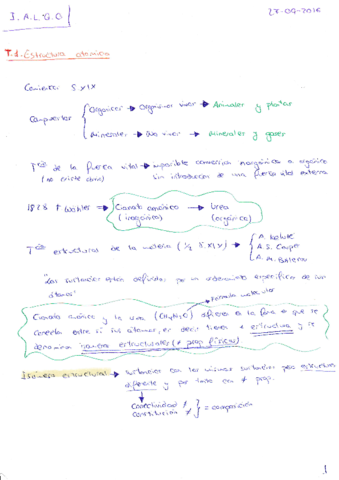 I.A.L.G.O
27-09-2016
T.1. Estructura atómica
Comienzos S. XIX
Compuestos
Orgánicos → Organismos vivos → Animales y plantas
Minerales → No vivos → Minerales y gases
Tª de la fuerza vital → imposible conversión inorgánico a orgánico
(no existe ahora) sin introducción de una fuerza vital externa
1828 F. Wöhler → Cianato amónico → Urea
(inorgánico) (orgánico)
Tª estructuras de la materia (1/2 S. XIX) → A. Kekulé
A.S. Couper
A. M. Butlerov
"Las sustancias están definidas por un ordenamiento específico de sus
átomos"
Fórmula molecular
Cianato amónico y la urea (CH₄N₂O) difieren en la forma en que se
conecta entre sí sus átomos, es decir, tienen ≠ estructura y se
denomina isómeros estructurales (≠ prop. físicas)
Isómeros estructurales → sustancias con las mismas sustancias pero estructura
diferente y por tanto con ≠ prop.
Conectividad ≠
constitución ≠ } = composición
1